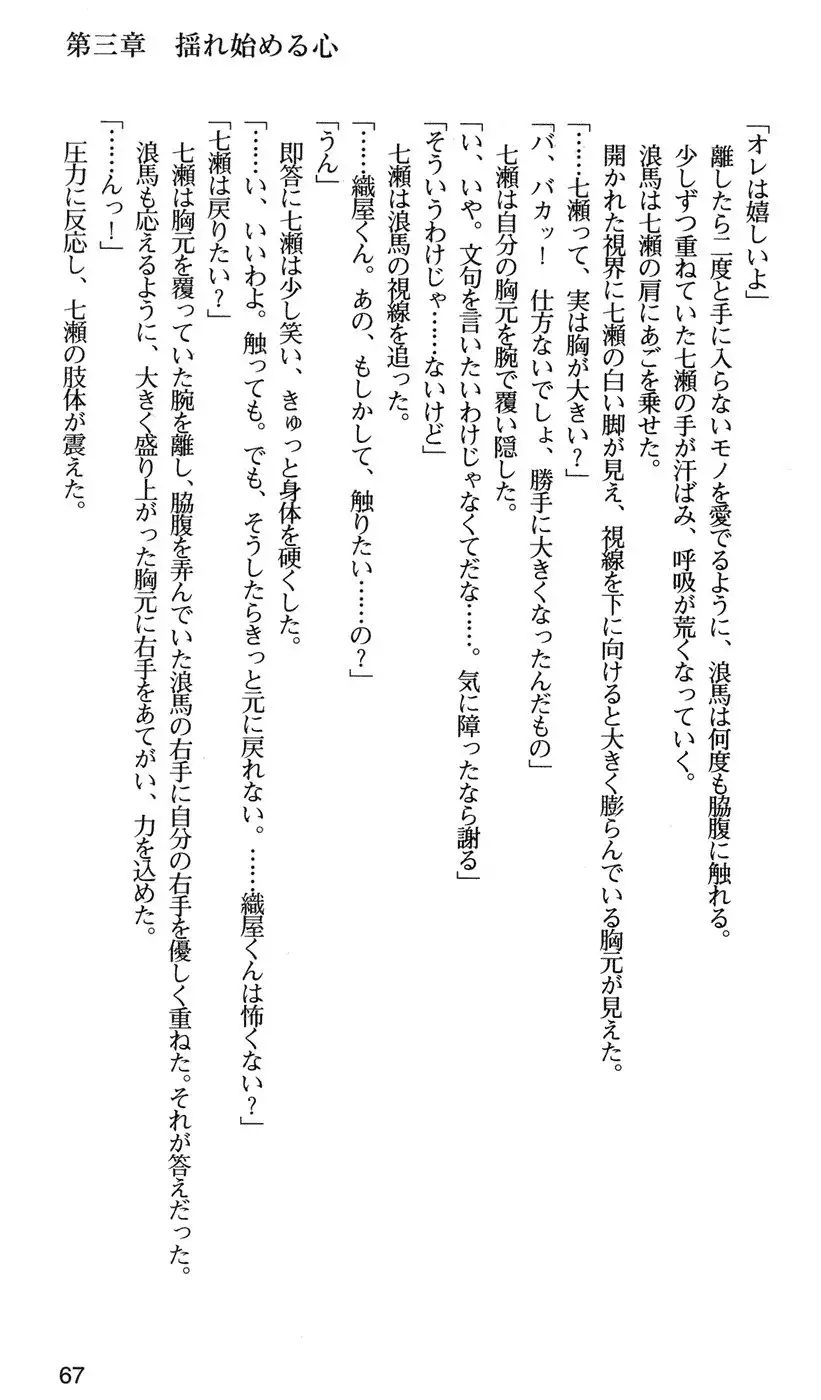 第三章　揺れ始める心
「オレは嬉しいよ」
離したら二度と手に入らないモノを愛でるように、浪馬は何度も脇腹に触れる。
少しずつ重ねていた七瀬の手が汗ばみ、呼吸が荒くなっていく。
浪馬は七瀬の肩にあごを乗せた。
開かれた視界に七瀬の白い脚が見え、視線を下に向けると大きく膨らんでいる胸元が見えた。
「……七瀬って、実は胸が大きい？」
「バ、バカッ！　仕方ないでしょ、勝手に大きくなったんだもの」
七瀬は自分の胸元を腕で覆い隠した。
「い、いや。文句を言いたいわけじゃなくてだな……。気に障ったなら謝る」
「そういうわけじゃ……ないけど」
七瀬は浪馬の視線を追った。
「……織屋くん。あの、もしかして、触りたい……の？」
「うん」
即答に七瀬は少し笑い、きゅっと身体を硬くした。
「……い、いいわよ。触っても。でも、そうしたらきっと元に戻れない。……織屋くんは怖くない？」
「七瀬は戻りたい？」
七瀬は胸元を覆っていた腕を離し、脇腹を弄んでいた浪馬の右手に自分の右手を優しく重ねた。それが答えだった。
浪馬も応えるように、大きく盛り上がった胸元に右手をあてがい、力を込めた。
「……んっ！」
圧力に反応し、七瀬の肢体が震えた。
67